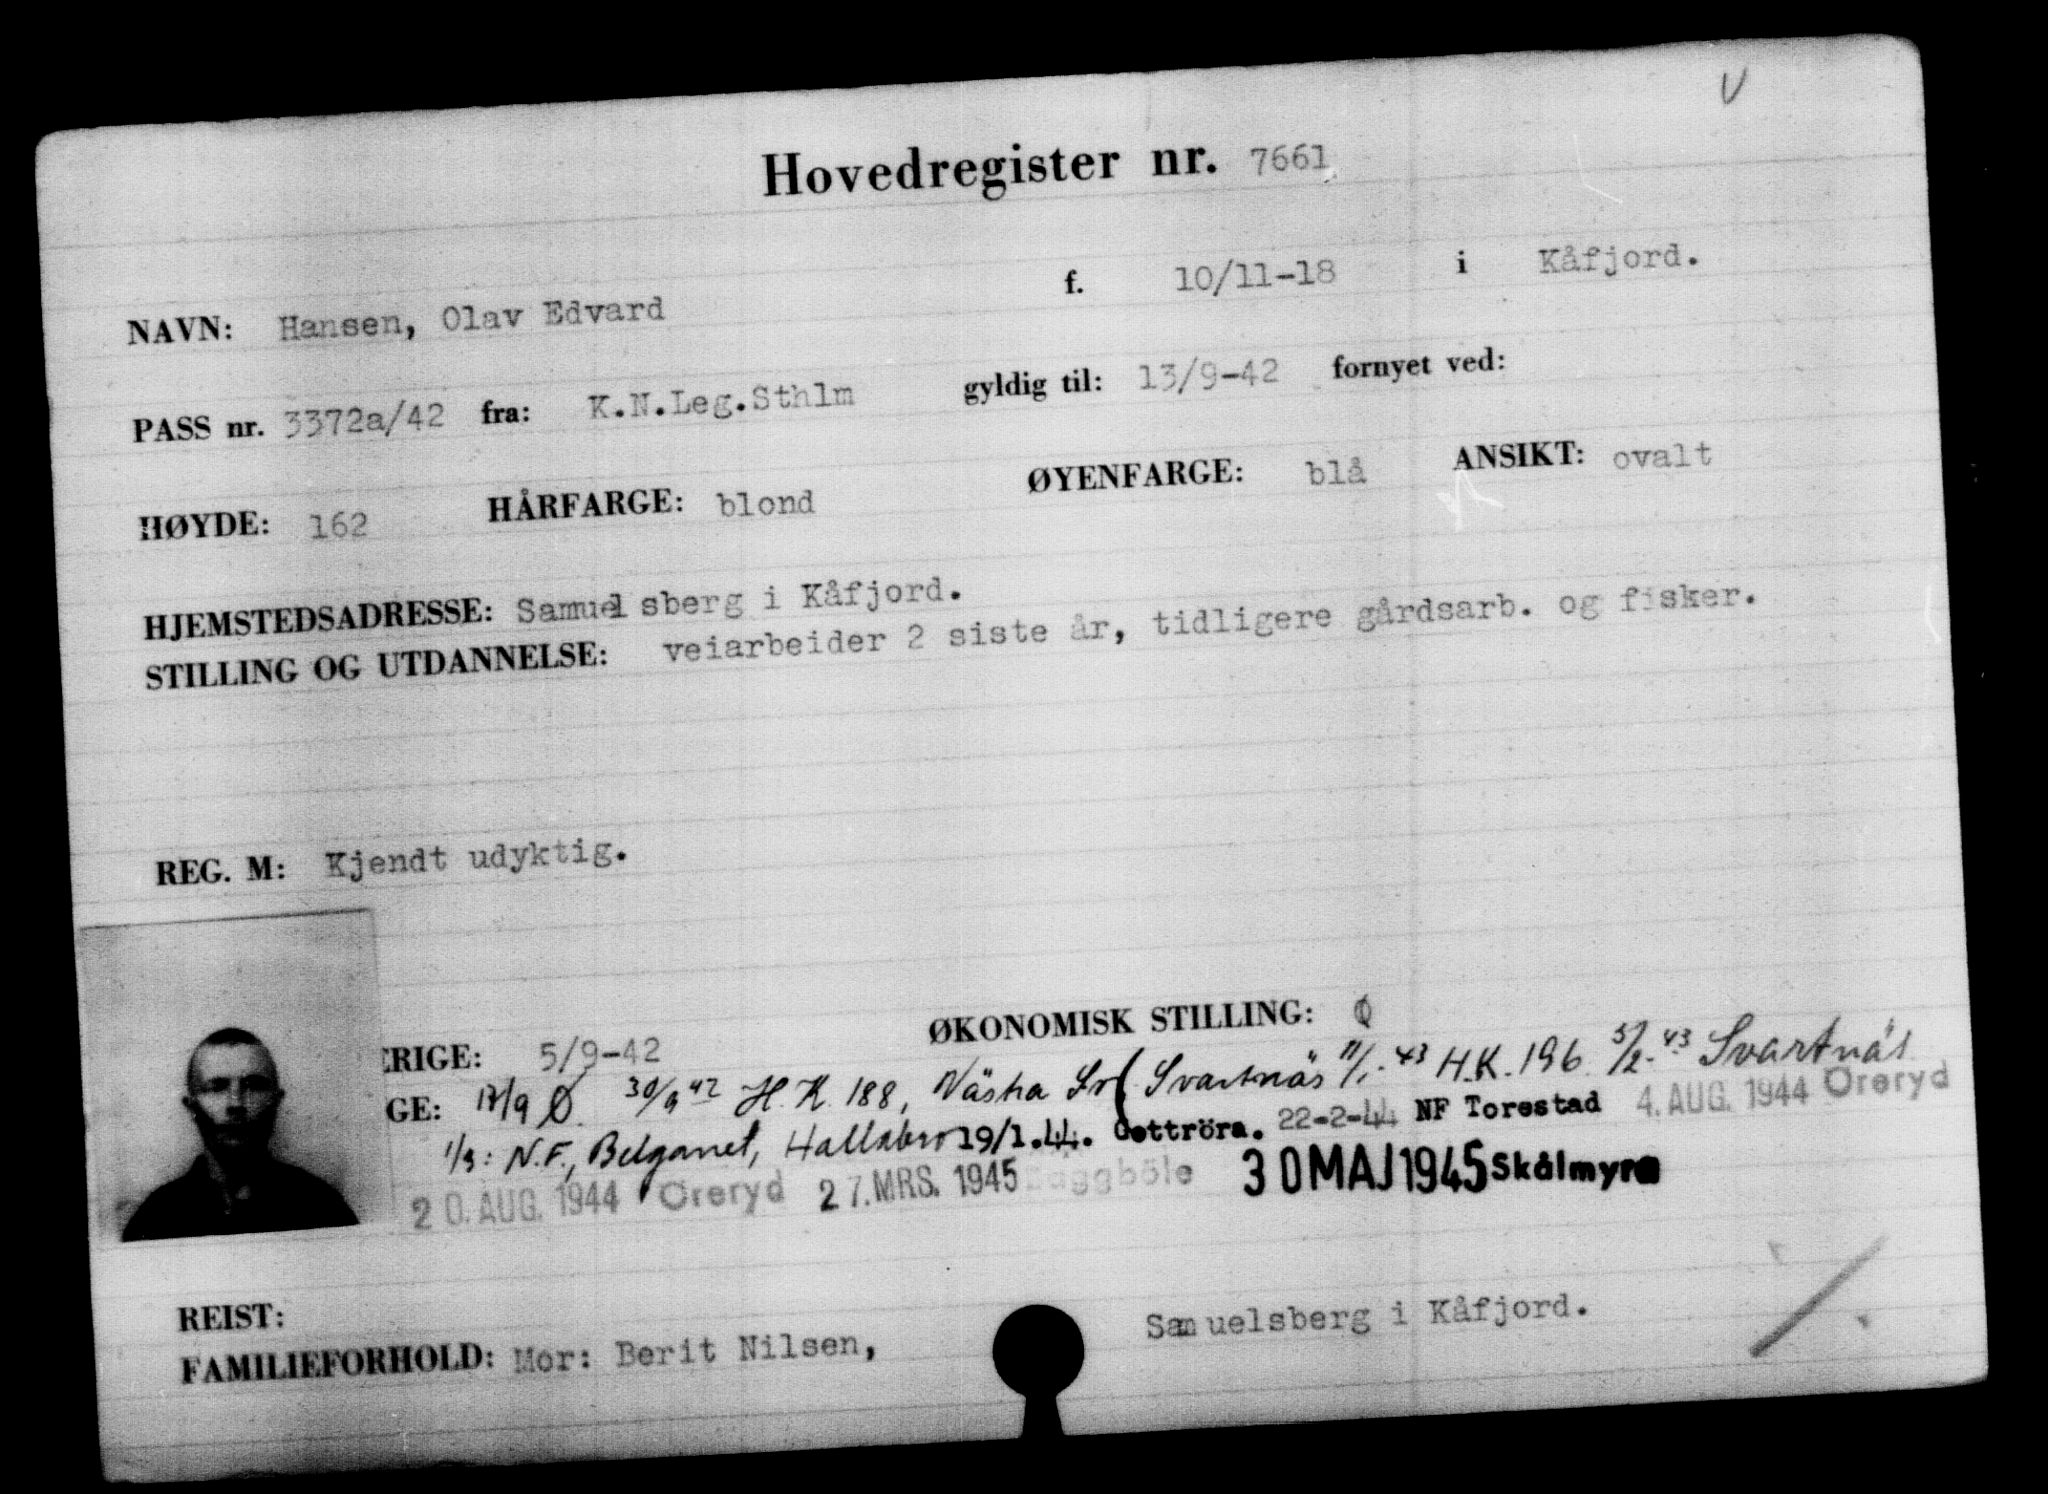 V
Hovedregister nr. 7661
NAVN: Hansen, Olav Edvard f. 10/11-18 i Kåfjord.
PASS nr. 3372a/42 fra: K.N.Leg.Sthlm gyldig til: 13/9-42 fornyet ved:
HØYDE: 162 HÅRFARGE: blond ØYENFARGE: blå ANSIKT: ovalt
HJEMSTEDSADRESSE: Samuelsberg i Kåfjord.
STILLING OG UTDANNELSE: veiarbeider 2 siste år, tidligere gårdsarb. og fisker.
REG. M: Kjendt udyktig.
ERIGE: 5/9-42 ØKONOMISK STILLING: 0
GE: 17/9 Ø. 30/9 42 H.K. 188, Nästra Svartnäs 11/1-43 H.K. 196 5/2-43 Svartnäs
1/3: N.F., Belganet, Hallabro 19/1.44. Gottröra. 22-2-44 NF Torestad 4. AUG. 1944 Öreryd
20. AUG. 1944 Öreryd 27. MRS. 1945 Baggböle 30 MAJ 1945 Skålmyra
REIST:
FAMILIEFORHOLD: Mor: Berit Nilsen, Samuelsberg i Kåfjord.